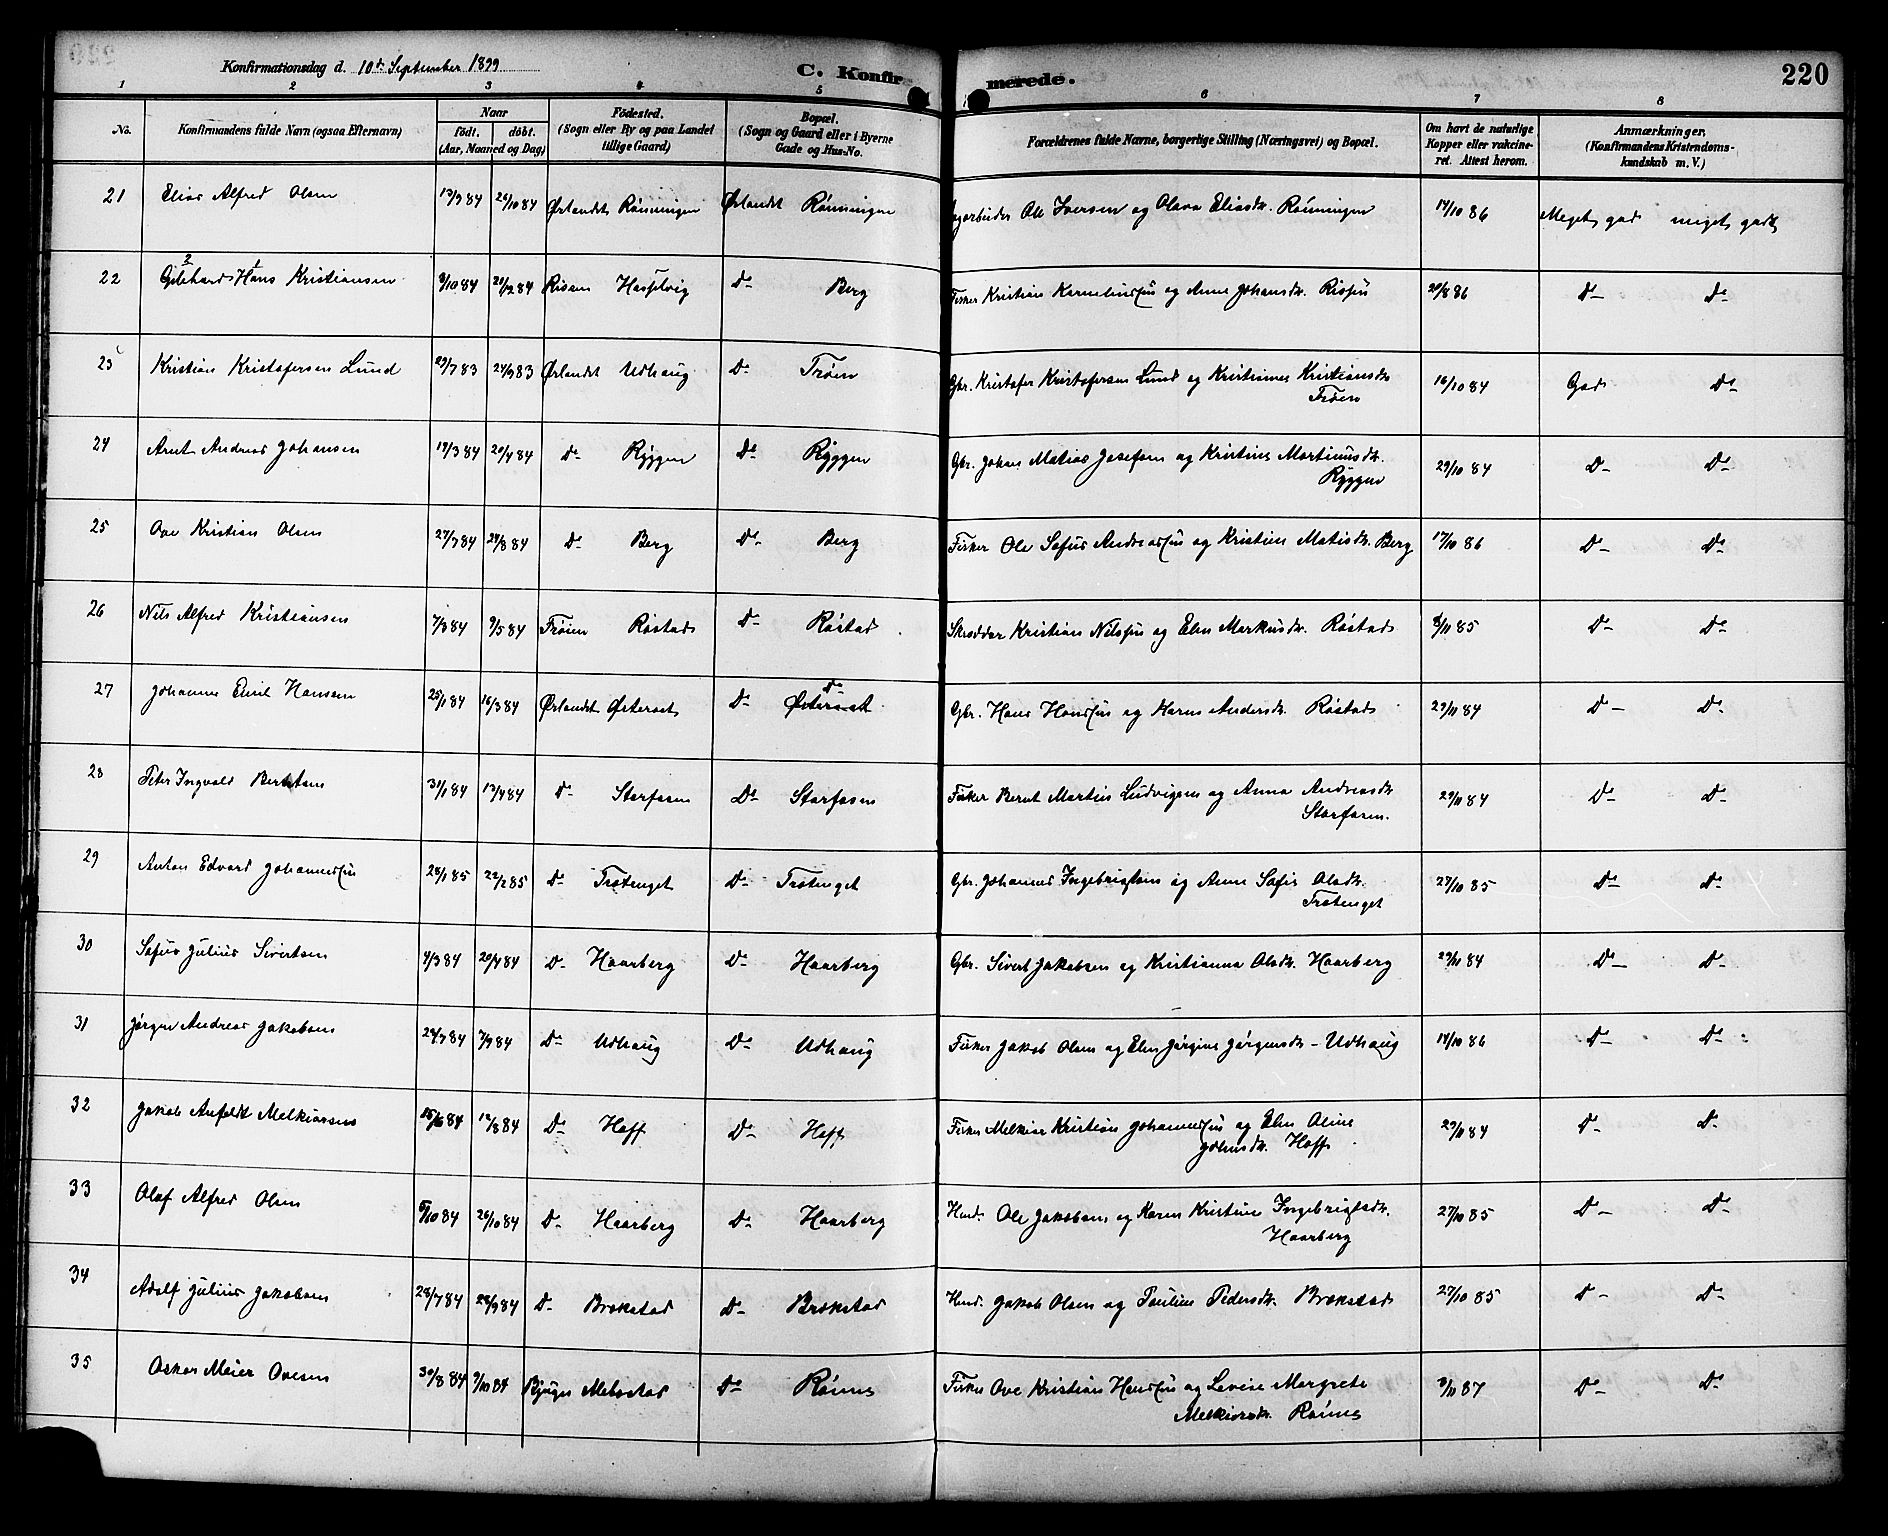 220
Konfirmationsdag d. 10de September 1899
C. Konfirmerede.
1 2 3 4 5 6 7 8
No. Konfirmandens fulde Navn (ogsaa Efternavn) Naar födt. döbt. (Aar, Maaned og Dag) Födested. (Sogn eller By og paa Landet tillige Gaard) Bopæl. (Sogn og Gaard eller i Byerne Gade og Hus-No. Forældrenes fulde Navne, borgerlige Stilling (Næringsvei) og Bopæl. Om havt de naturlige Kopper eller vaccineret. Attest herom. Anmærkninger. (Konfirmandens Kristendomskundskab m. V.)
21 Elias Alfred Olsen 84 26/10 84 Ørlandet Rønningen Ørlandet Rønningen Ole Iversen og Olava Eliasdr. Rønningen 14/10 86 Meget god meget godt
22 Hans Kristiansen 84 84 Rissen Hasselvig Do Berg Fisker Kristian Korneliussen og Anne Johansdr. Rissen 20/8 86 Do Do
23 Kristian Kristofersen Lund 29/7 83 83 Ørlandet Udhaug Do Trøen Gbr. Kristofer Kristofersen Lund og Kristianes Kristiansdr
Trøen 16/10 84 God Do
24 Arnt Andreas Johansen 19/3 84 20/4 84 Do Ryggen Do Ryggen Gbr. Johan Matias Josefsen og Kristine Martinusdr.
Ryggen 29/10 84 Do Do
25 Ove Kristian Olsen 27/7 84 24/8 84 Do Berg Do Berg Fisker Ole Sofus Andreassen og Kristine Matisdr. Berg 17/10 86 Do Do
26 Nils Alfred Kristiansen 7/3 84 9/5 84 Røstad Do Røstad Skrædder Kristian Nilssen og Elen Markusdr. Røstad 85 Do Do
27 Johannes Emil Hansen 25/1 84 16/3 84 Ørlandet Østeraat Do Do Østeraat Gbr. Hans Hanssen og Maren Andersdr. Røstad 29/11 84 Do Do
28 Peter Ingvald Berntsen 31/1 84 13/4 84 Do Storfosen Do Storfosen Fisker Bernt Martin Ludvigsen og Anna Andreasdr
Storfosen. 29/11 84 Do Do
29 Anton Edvard Johannessen 28/1 85 22/2 85 Do Trøtenget Do Trøtenget Gbr. Johannes Ingebrigtsen og Anne Sofie Olsdr.
Trøtenget 27/10 85 Do Do
30 Sofus Julius Sivertsen 4/3 84 20/4 84 Do Haarberg Do Haarberg Gbr. Sivert Jakobsen og Kristianna Olsdr. Haarberg 29/11 84 Do Do
31 Jørgen Andreas Jakobsen 84 7/9 84 Do Udhaug Do Udhaug Fisker Jakob Olsen og Elen Jørgine Jørgensdr - Udhaug 14/10 86 Do Do
32 Jakob Anfeldt Melkiorsen 15/6 84 17/8 84 Do Hoff Do Hoff Fisker Melkior Kristian Johannessen og Elen Oline
Johnsdr. Hoff 29/11 84 Do Do
33 Olaf Alfred Olsen 6/10 84 26/10 84 Do Haarberg Do Haarberg Hmd. Ole Jakobsen og Karen Kristine Ingebrigtsdr.
Haarberg 27/10 85 Do Do
34 Adolf Julius Jakobsen 28/7 84 28/9 84 Do Brekstad Do Brekstad Hmd. Jakob Olsen og Pauline Pedersdr. Brekstad 27/10 85 Do Do
35 Oskar Meier Ovesen 30/8 84 9/10 84 Bjugn Mebostad Do Rønne Fisker Ove Kristian Hanssen og Lovise Margrete
Melkiorsdr. Rønne 3/11 87 Do Do